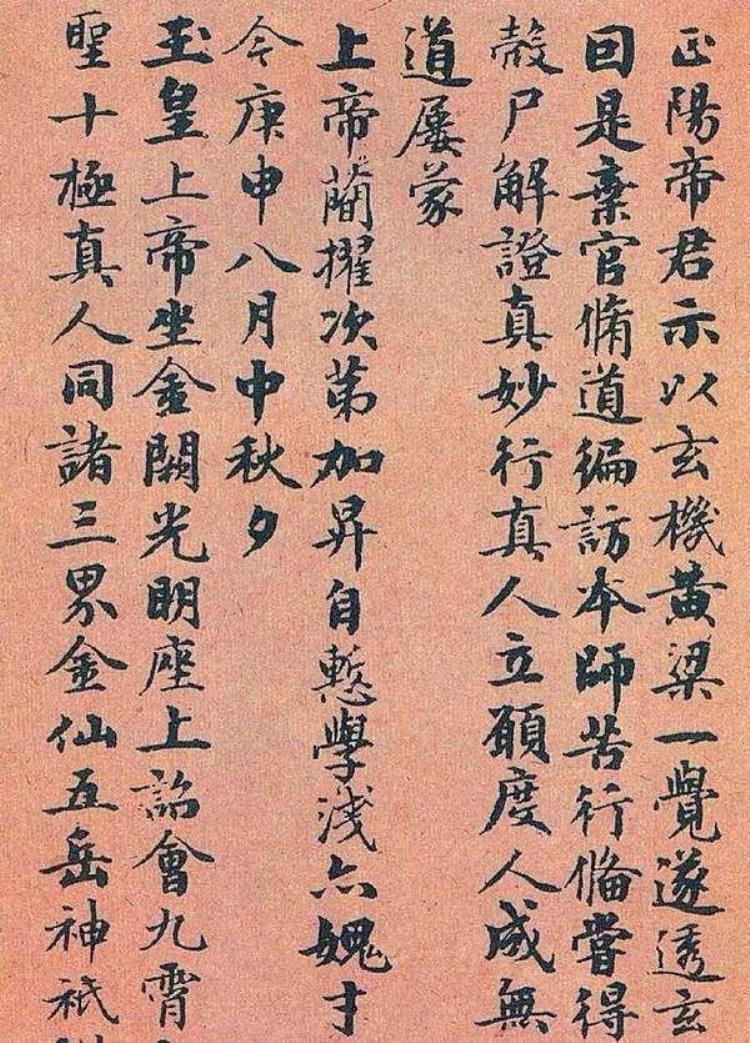 正陽帝君示以玄機黄粱一覺遂透玄
回是棄官脩道徧訪本師苦行備嘗得
殻尸解證真妙行真人立願度人成無
道屢蒙
上帝蕳擢次苐加昇自慙學淺亦媿才
今庚申八月中秋夕
玉皇上帝坐金闕光明座上詔會九霄
聖十極真人同諸三界金仙五岳神祇